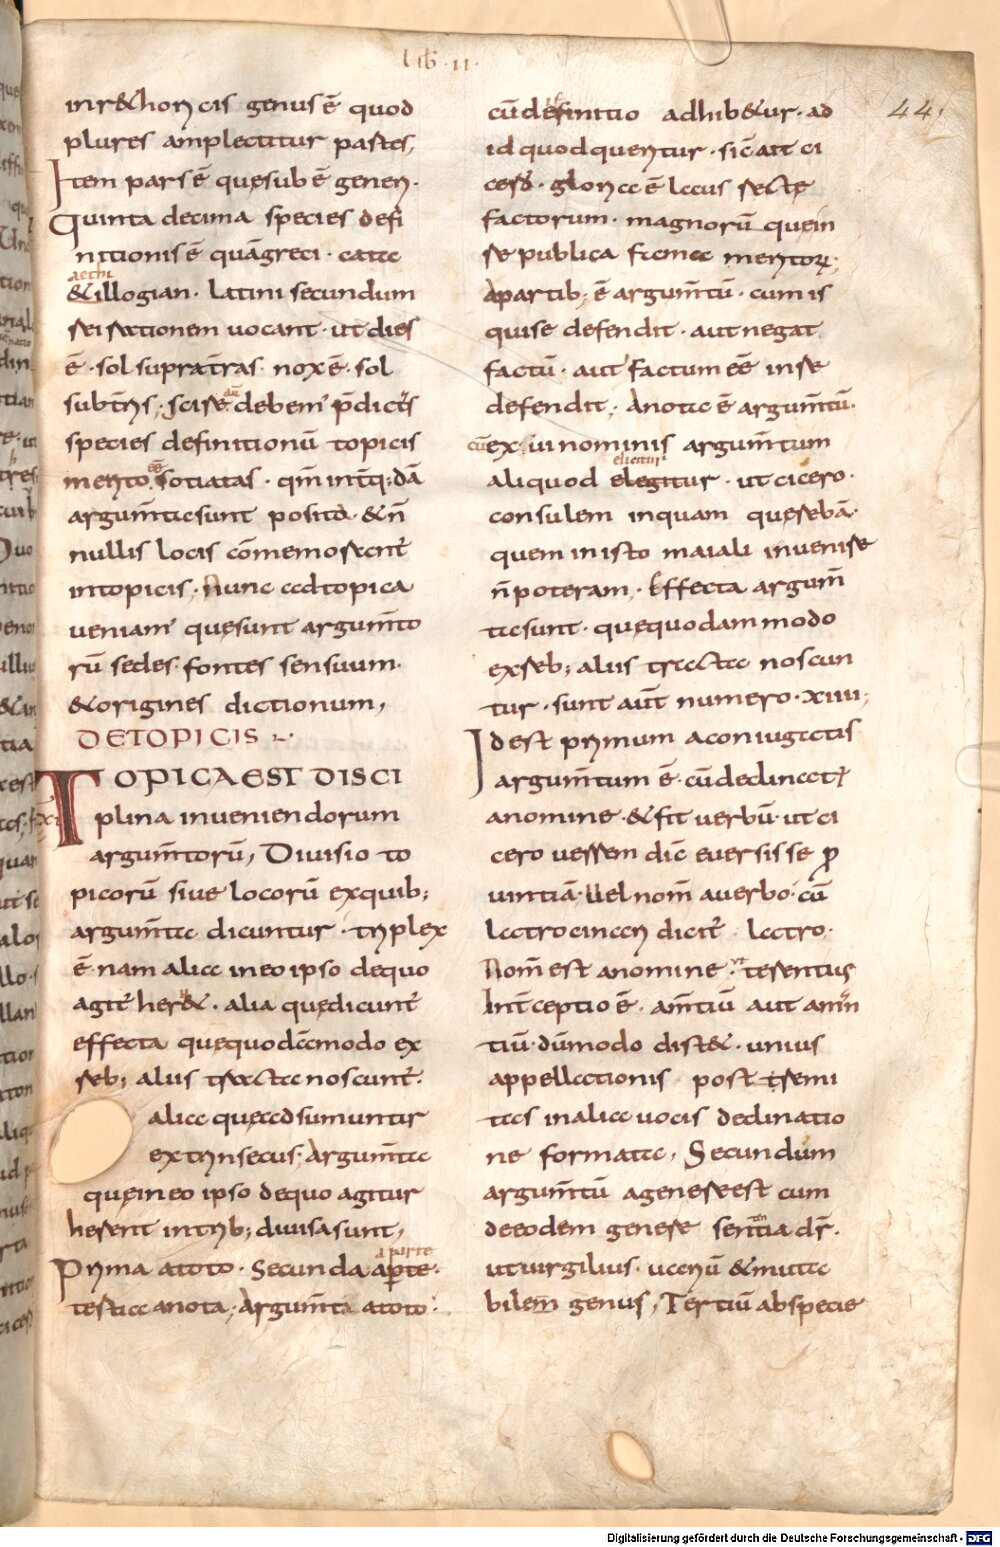 Lib · II ·
44.
inr&horicis genus ē quod
plures amplectitur partes,
Item pars ē quę sub ē generi ·
Quinta decima species defi
nitionis ē quā greci · catec
aethi
&illogian · Latini secundum
rei rationem uocant · ut dies
ē · sol supra t̄ras · nox ē · sol
sub t̄ris; Scire debem' p̄dictas
species definitionū topicis
merito sotiatas · qm̄ int̄ q;dā
argum̄ta sunt posita · & n̄
nullis locis cōmemorant̄
in topicis · Nunc ad topica
ueniam' quę sunt argum̄to
rū sedes · fontes sensuum ·
& origines dictionum,
DE TOPICIS
TOPICA EST DISCI
plina inueniendorum
argum̄torū, Diuisio to
picorū siue locorū ex quib;
argum̄ta dicuntur · triplex
ē · nam alia in eo ipso de quo
agit̄ her& · alia quę dicunt̄
effecta quę quodāmodo ex
reb; aliis tracta noscunt̄ ·
alia quę adsumuntur
extrinsecus; Argum̄ta
quę in eo ipso de quo agitur
herent in trib; diuisa sunt,
a parte
Prima a toto · Secunda a parte ·
tertia a nota; Argum̄ta a toto ·
cū definitio adhib&ur · ad
id quod queritur · sic̄ ait ci
cero · gloria ē laus recte
factorum · magnorū que in
re publica fama meritorum;
A partib; ē argum̄tū · cum is
qui se defendit · aut negat
factū · aut factum ēē in re
defendit; A nota ē argum̄tū ·
cū ex ui nominis argum̄tum
elicitur
aliquod elegitur · ut cicero ·
consulem inquam querebā ·
quem in isto maiali inuenire
n̄ poteram; Effecta argum̄
ta sunt · quę quodammodo
ex reb; aliis tracta noscun
tur · sunt aut̄ numero · XIIII;
Id est primum a coniugatis
argum̄tum ē · cū declinat̄
a nomine · & fit uerbū · ut ci
cero uerrem dic̄ euersisse ꝓ
uintiā · Uel nom̄ a uerbo · cū
latrocinari dicit̄ latro ·
Nom̄ est a nomine · ut terentius
Int̄ceptio ē · am̄tiū aut am̄in
tiū · dūmodo dist& · unius
appellationis post tremi
tas in alia uocis declinatio
ne formata, Secundum
argum̄tū a genere est cum
de eodem genere sententia dr̄ ·
ut uirgilius · uariū & muta
bilem genus, Tertiū ab specie
Digitalisierung gefördert durch die Deutsche Forschungsgemeinschaft - DFG